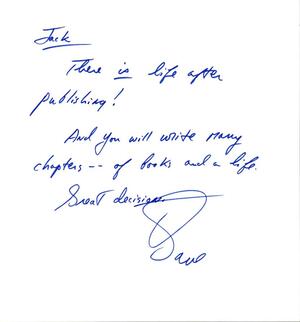 Jack
There is life after
publishing!
And you will write many
chapters-- of books and a life.
Great decision.
Dave